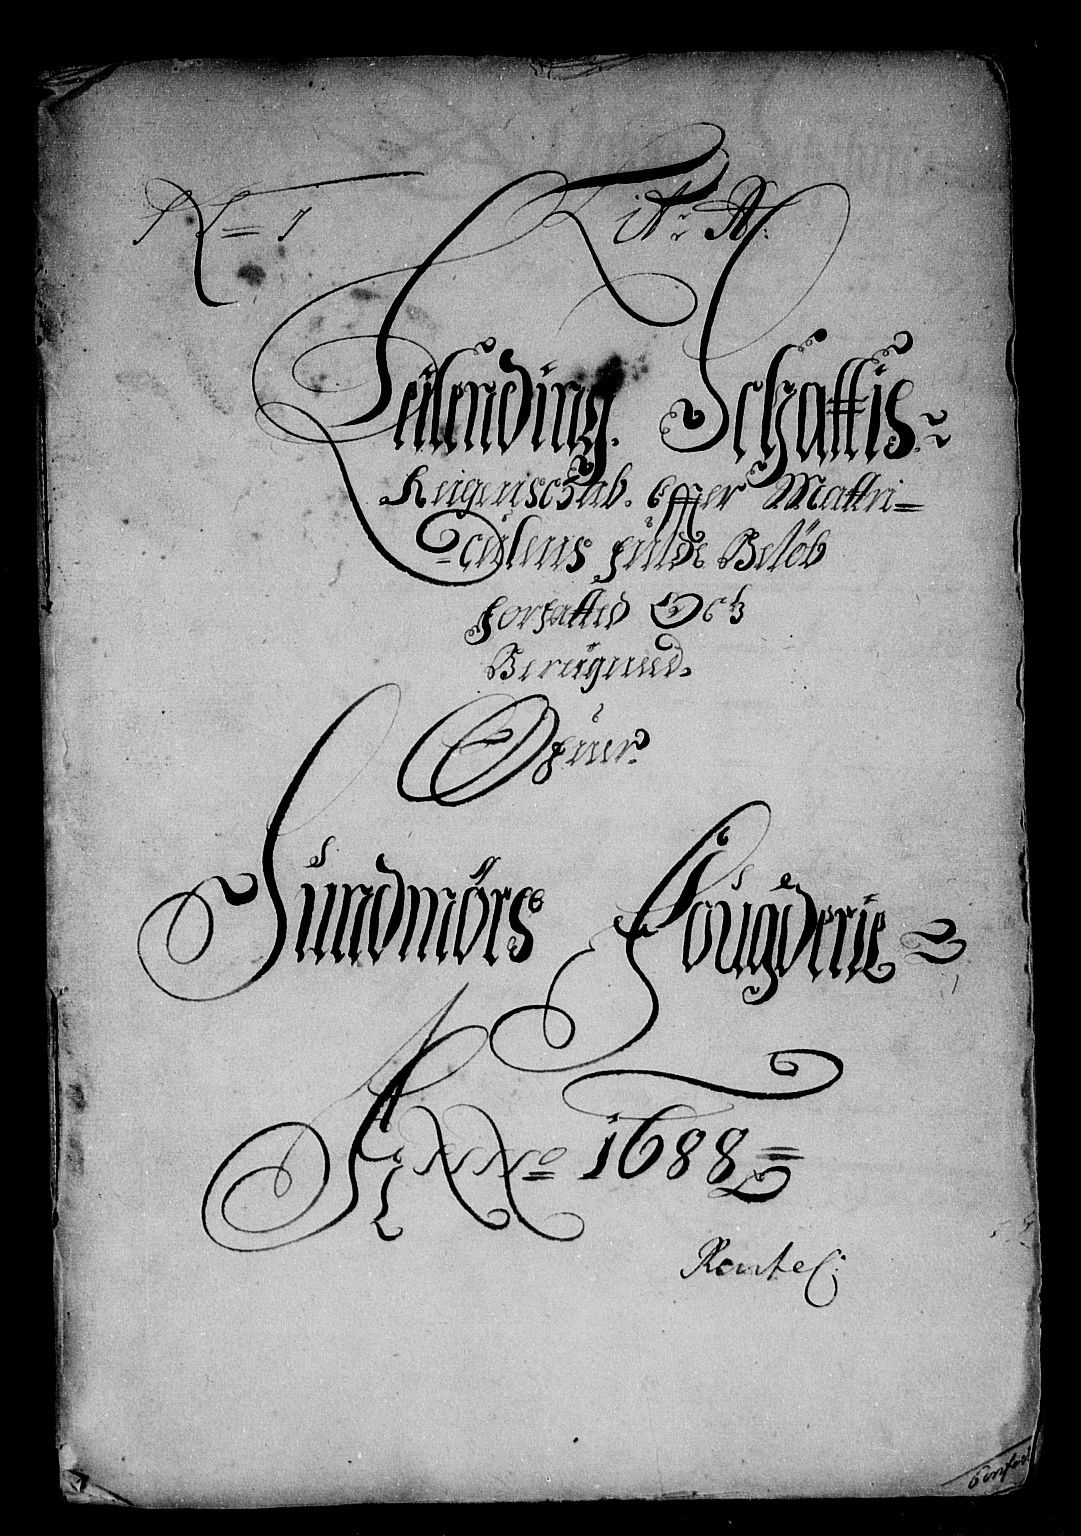 N = 7 Lit: A:
Leilending Schattis-
Reigenschab. Effter Mattri=
=culens fulde Beløb
forfattid Och
Beregnned.
Ofuer
Sundmörs Fougderie
Anno 1688
RenteC: